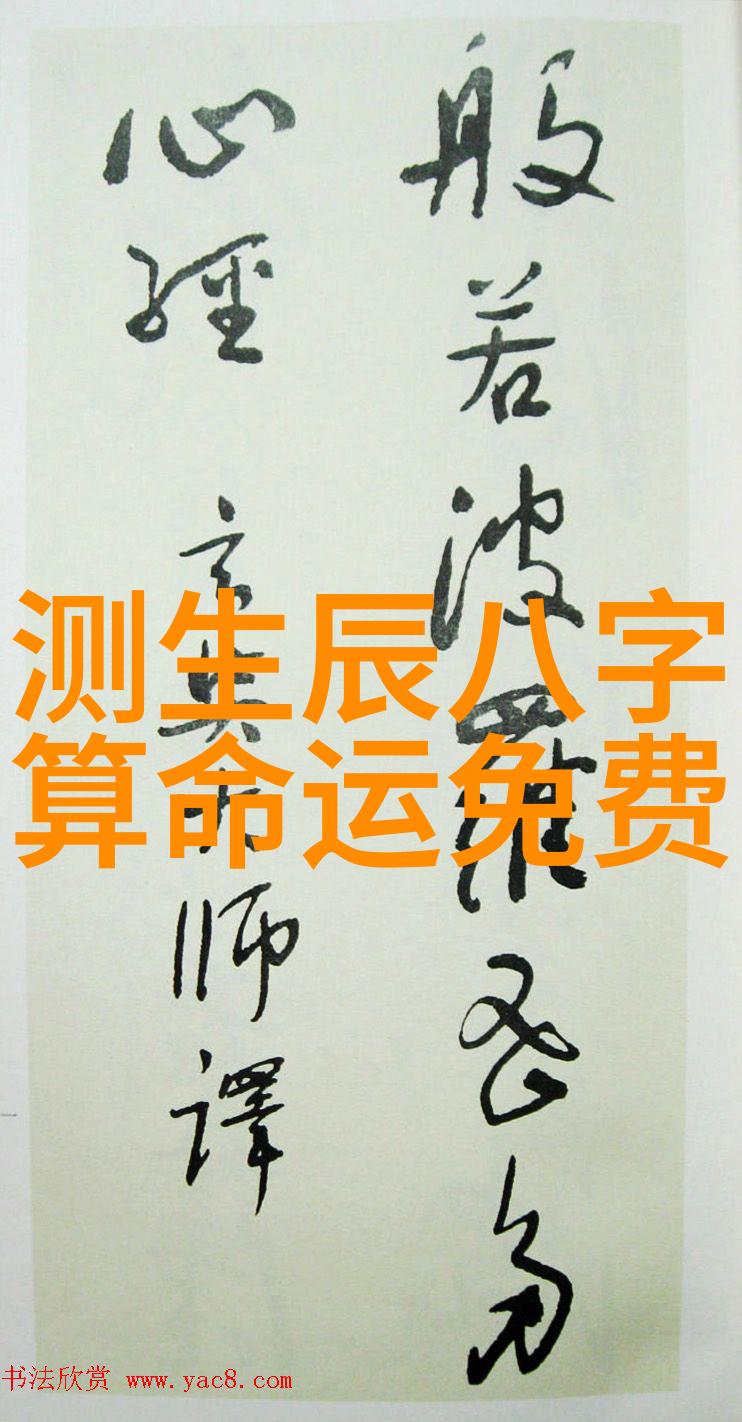 般若波羅密多
心經 玄奘大師譯
测生辰八字
算命运免费
书法欣赏 www.yac8.com